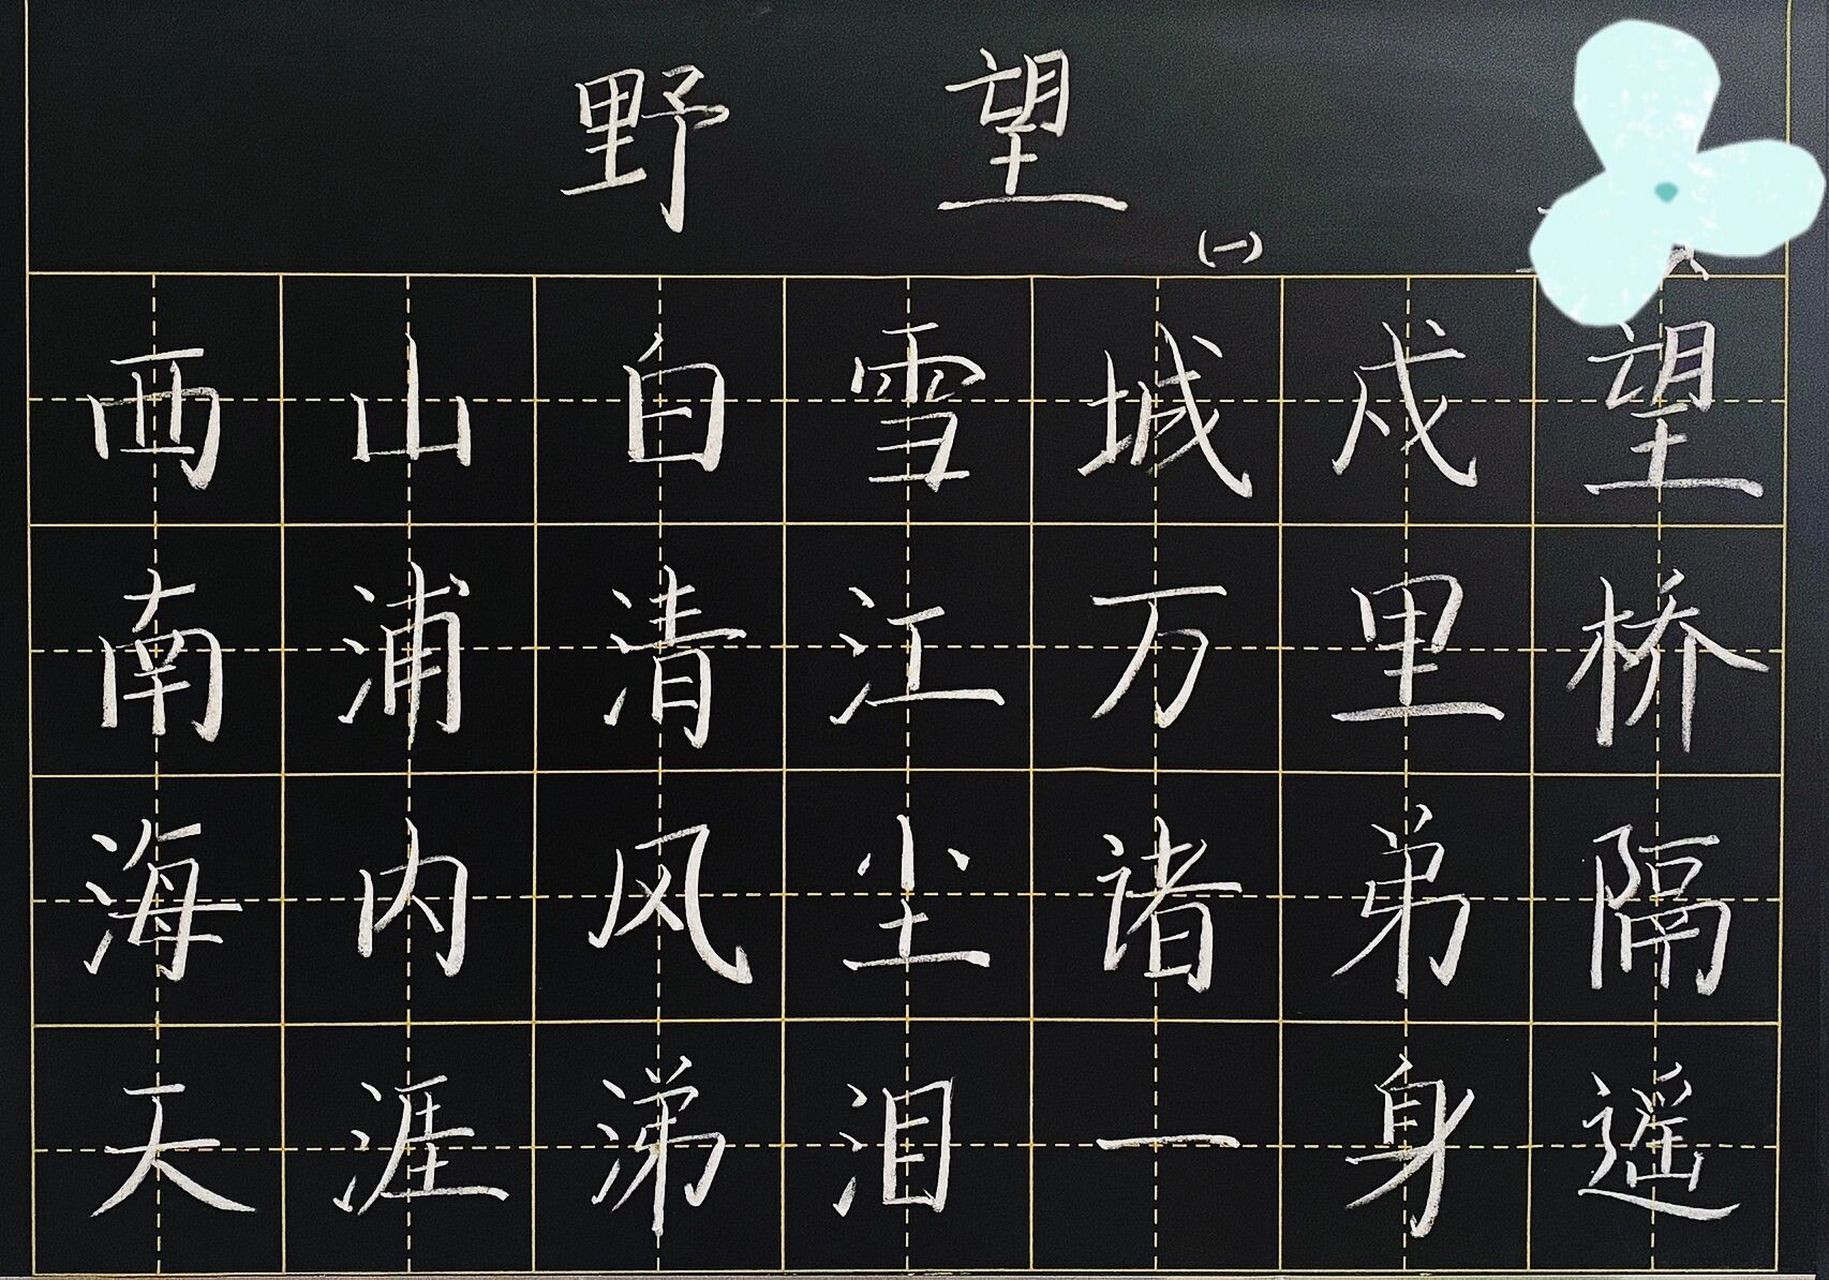 野望
(一)
西山白雪城戍望
南浦清江万里桥
海内风尘诸弟隔
天涯涕泪一身遥